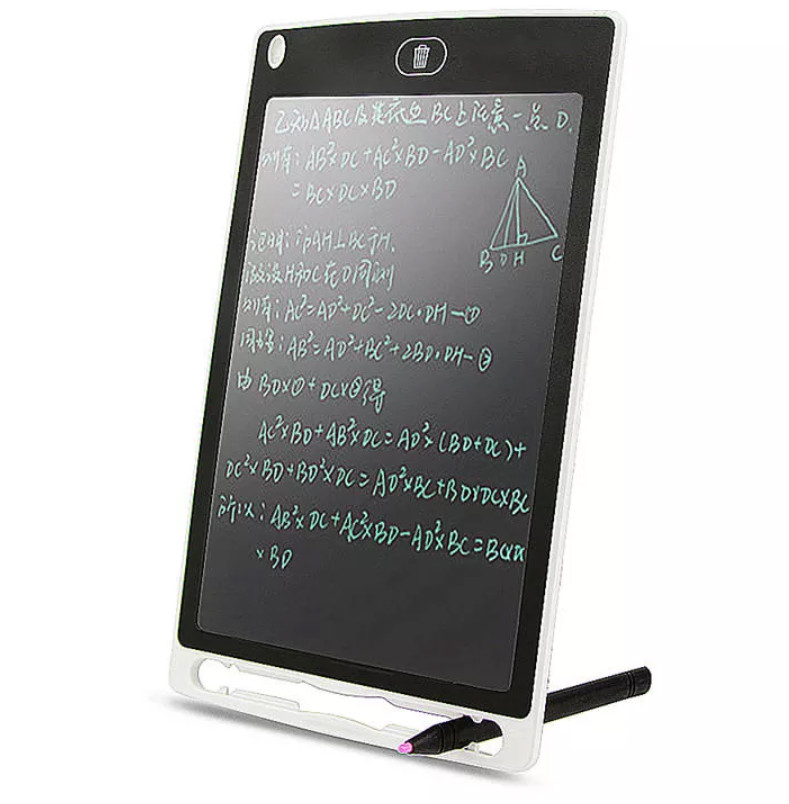 已知△ABC及其底边BC上任意一点D.
则有:AB²×DC+AC²×BD-AD²×BC
=BC×DC×BD
A
B D H C
证明:作AH⊥BC于H.
假设H和C在D同侧
则有:AC²=AD²+DC²-2DC·DH-①
同理:AB²=AD²+BC²+2BD·DH-②
由BD×①+DC×②得
AC²×BD+AB²×DC=AD²×(BD+DC)+
DC²×BD+BD²×DC=AD²×BC+BD×DC×BC
所以:AB²×DC+AC²×BD-AD²×BC=BC×
×BD